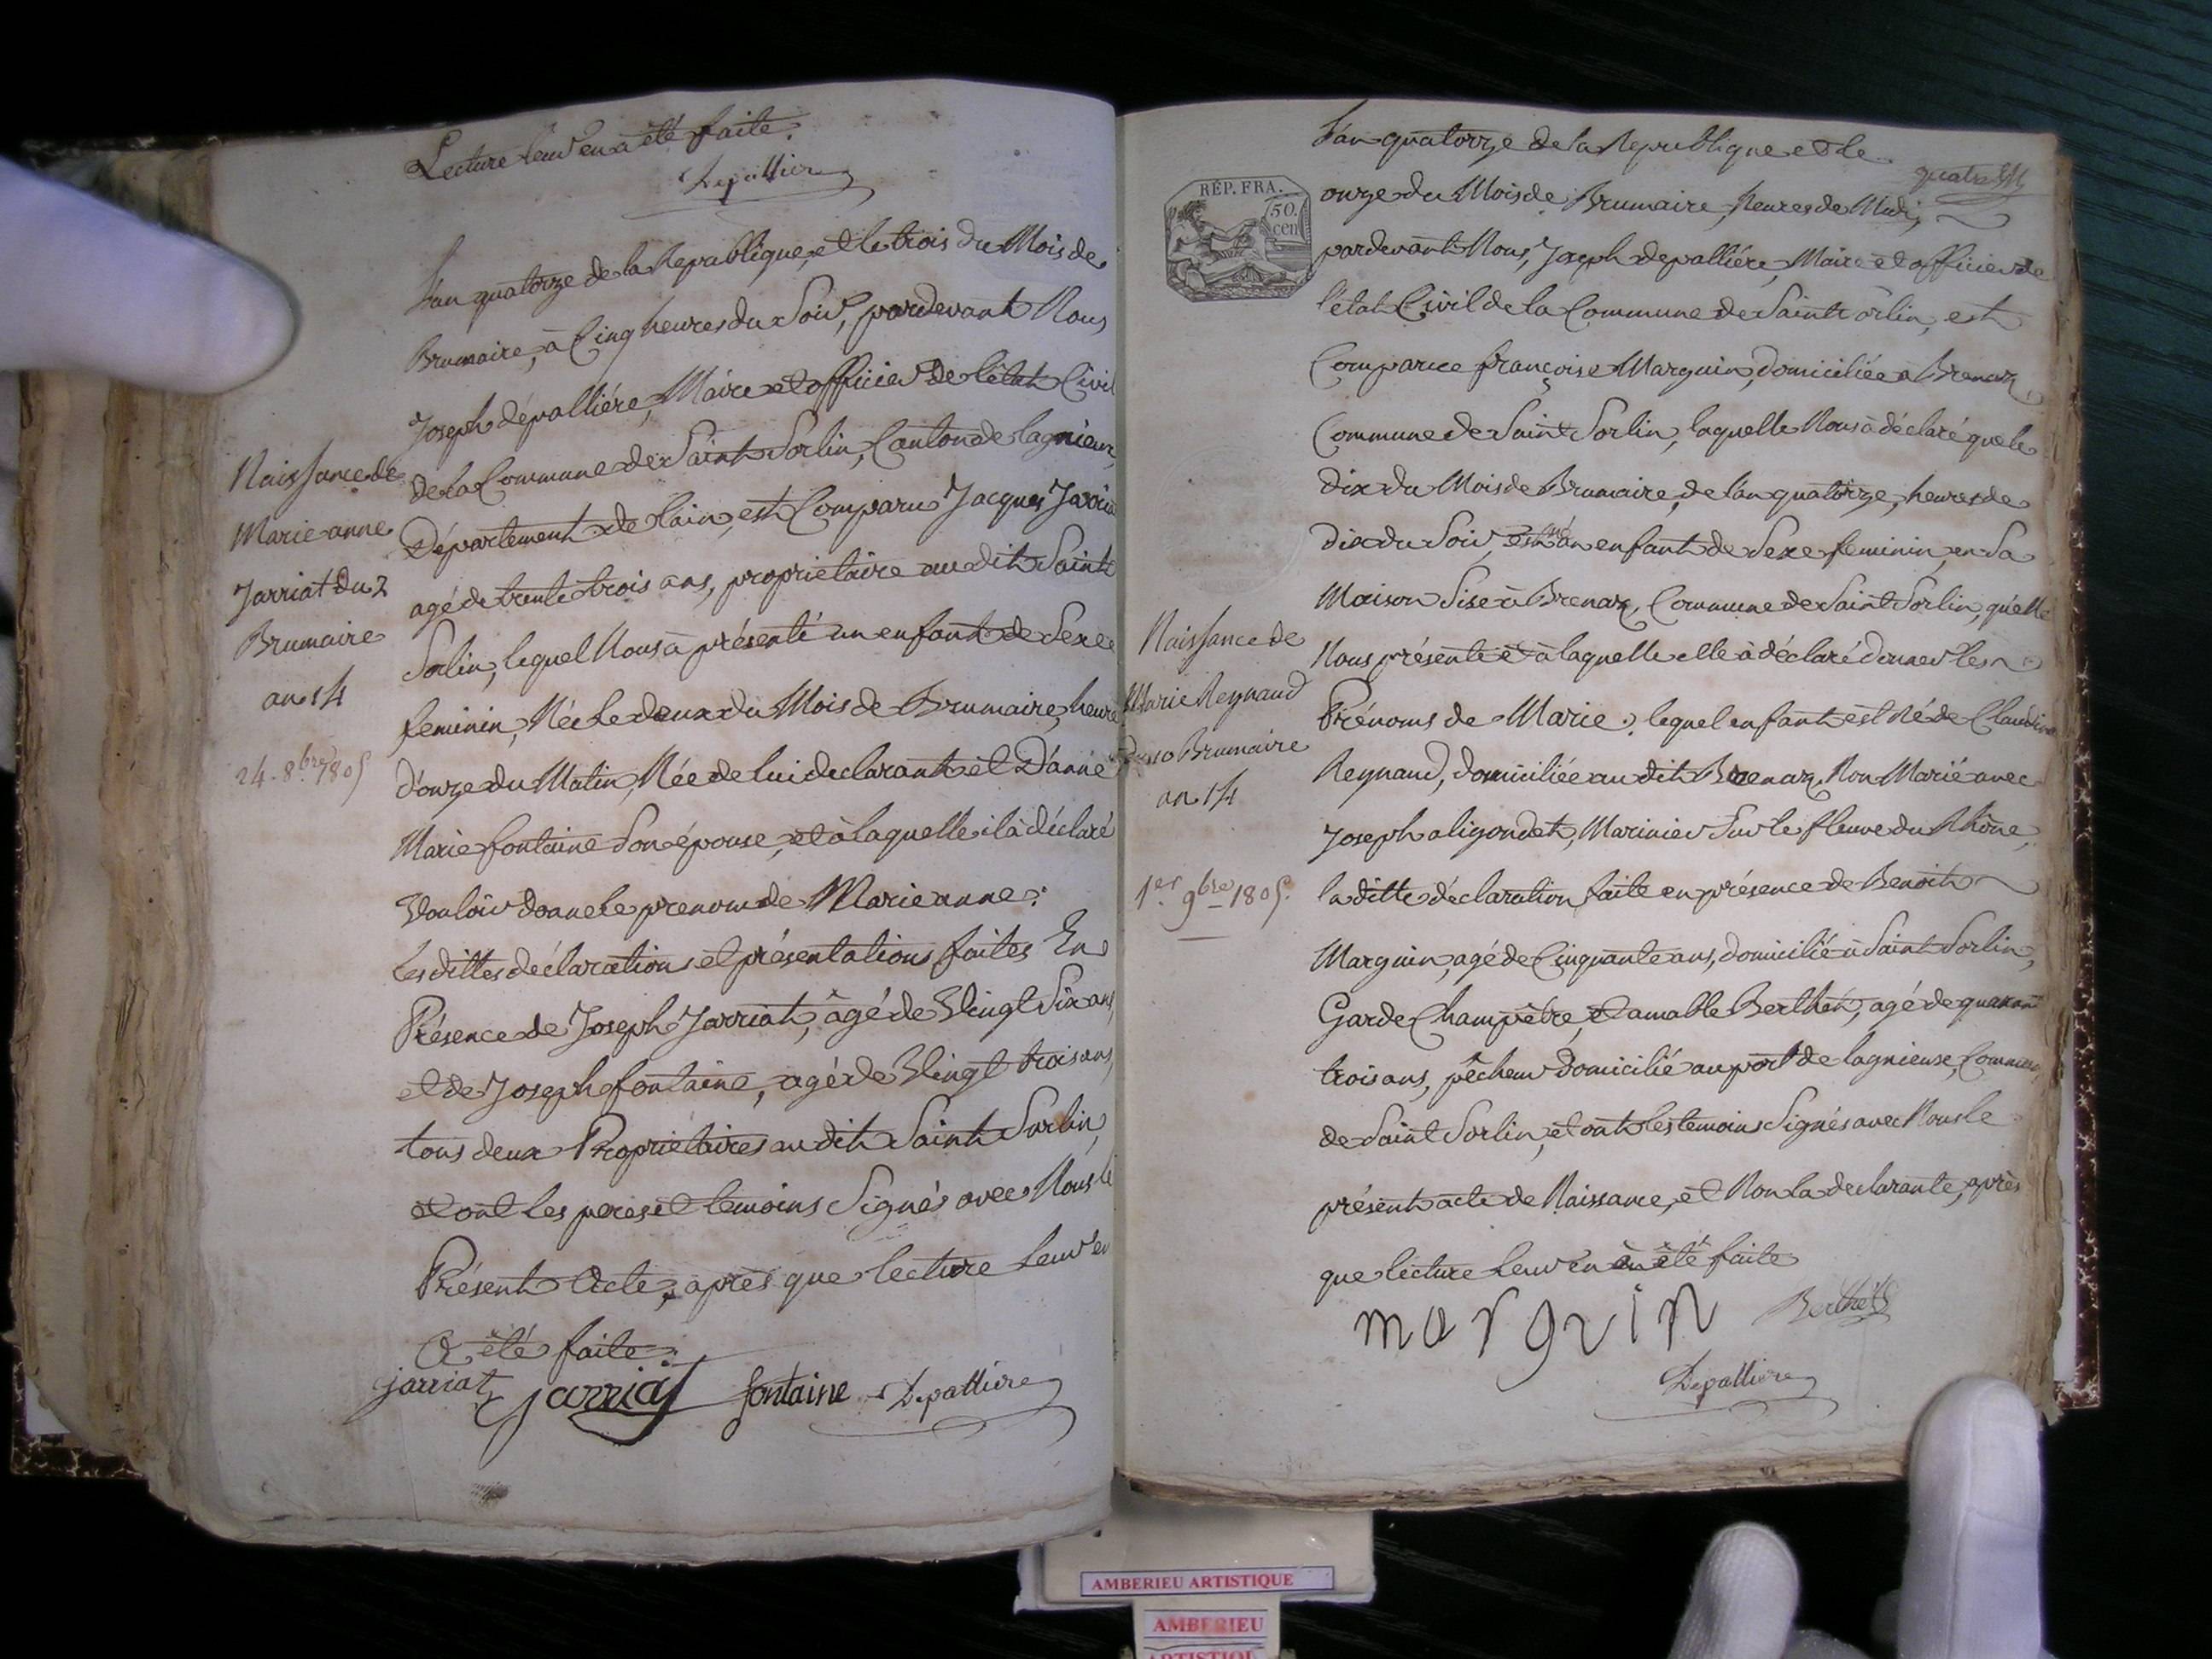 Lecture leur en à été faite.
Depallière
L'an quatorze de la Republique, et le trois du Mois de
Brumaire, à Cinq heures du Soir, pardevant Nous
Joseph dépalliére, Maire et officier de l'état Civil
de la Commune de Saint Sorlin, Canton de lagnieux,
Département de l'ain, est Comparu Jacques Jarriat
agé de trente trois ans, propriétaire au dit Saint
Sorlin, lequel Nous à présenté un enfant de Sexe
feminin, Née le deux du Mois de Brumaire, heure
d'onze du Matin, Née de lui declarant et D'anne
Marie fontaine Son épouse, et à laquelle il à déclaré
Vouloir donner le prenom de Marie anne.
Les dittes déclaration et présentations faites En
Présence de Joseph Jarriat, âgé de Vingt Six ans,
et de Joseph fontaine, agé de Vingt trois ans,
tous deux Propriétaires au dit Saint Sorlin,
et ont les peres et temoins Signés avec Nous le
Présent Acte, après que lecture leur en
A été faite.
jarriat Jarriat fontaine Depallière
Naissance de
Marie anne
Jarriat du 2
Brumaire
an 14
24 8bre 1805
L'an quatorze de la Republique et le
onze du Mois de Brumaire, heures de Midi,
pardevant Nous, Joseph depalliére, Maire et officier de
l'état Civil de la Commune de Saint Sorlin, est
Comparue françoise Marguin, domiciliée à Brenaz,
Commune de Saint Sorlin, laquelle Nous à déclaré que le
dix du Mois de Brumaire, de l'an quatorze, heures de
dix du Soir, est né un enfant de Sexe feminin, en Sa
Maison Sise à Brenaz, Commune de Saint Sorlin, qu'elle
Nous présente et à laquelle elle à déclaré donner les
Prénoms de Marie. lequel enfant est Né de Claudine
Reynaud, domiciliée au dit Brenaz, Non Marié avec
Joseph aligondet, Marinier Sur le fleuve du Rhône,
la ditte déclaration faite en présence de Benoit
Marguin, agé de Cinquante ans, domicilié à Saint Sorlin,
Garde Champêtre, et amable Berthet, agé de quarante
trois ans, pêcheur domicilié au port de lagnieuse, Commune
de Saint Sorlin, et ont les temoins Signés avec Nous le
présent acte de Naissance, et Non la declarante, après
que lecture leur en à été faite
marguin Berthet
Depallière
RÉP. FRA.
50.
cen
Naissance de
Marie Reynaud
du 10 Brumaire
an 14
1er 9bre 1805.
AMBERIEU ARTISTIQUE
AMBERIEU
ARTISTIQUE